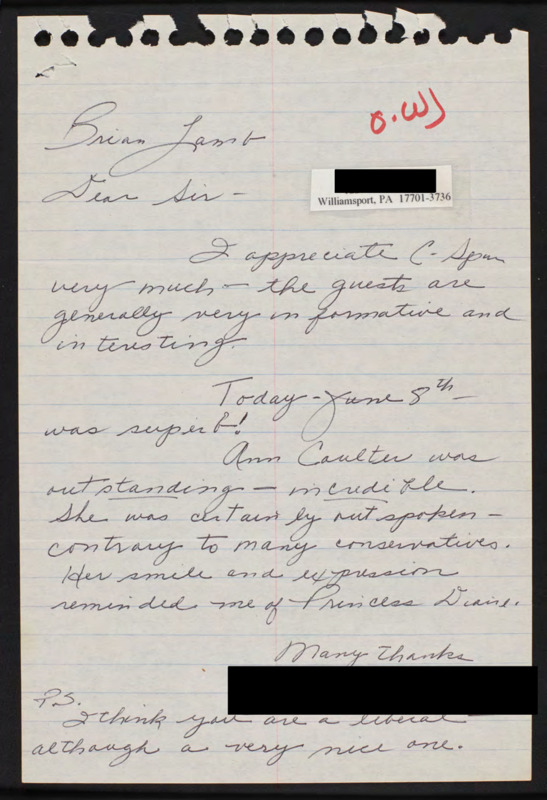 O.W)
Brian Lamb
Williamsport, PA 17701-3736
Dear Sir -
I appreciate C-Span
very much - the guests are
generally very informative and
interesting.
Today - June 8th -
was superb!
Ann Coulter was
outstanding - incredible.
She was certainly outspoken -
contrary to many conservatives.
Her smile and expression
reminded me of Princess Diane.
Many thanks
P.S.
I think you are a liberal
although a very nice one.